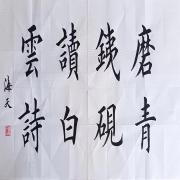 磨青
鐵硯
讀白
雲詩
海天